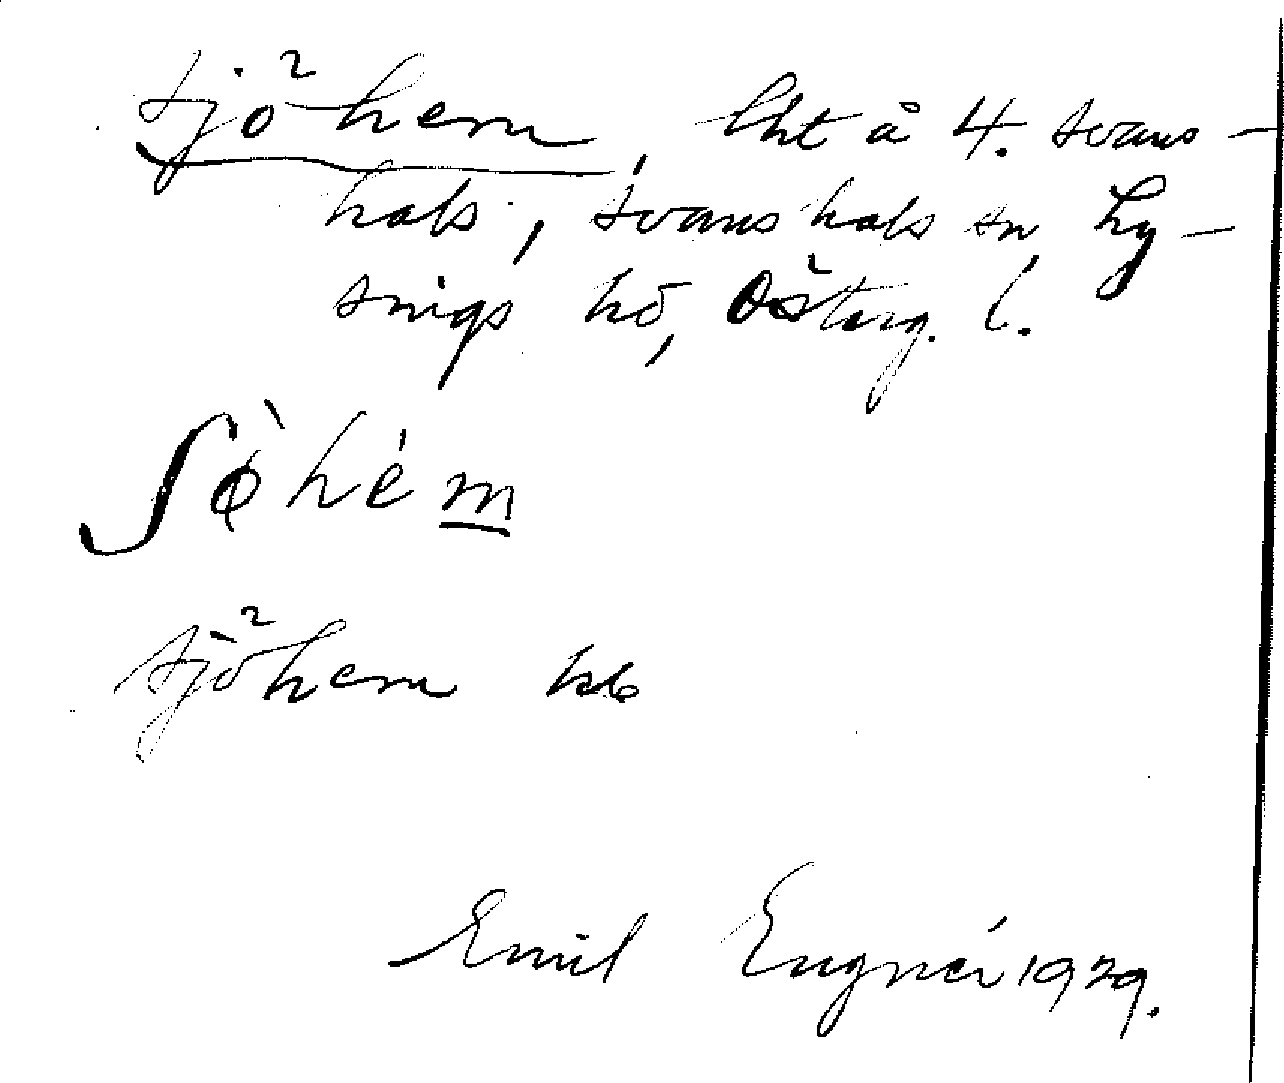 sjö²hem, lht å 4. svans-
hals, svanshals sn Hy-
snigs hd, Österg. l.
ʃø̀hém
sjö²hem
Emil Engnér 1929.